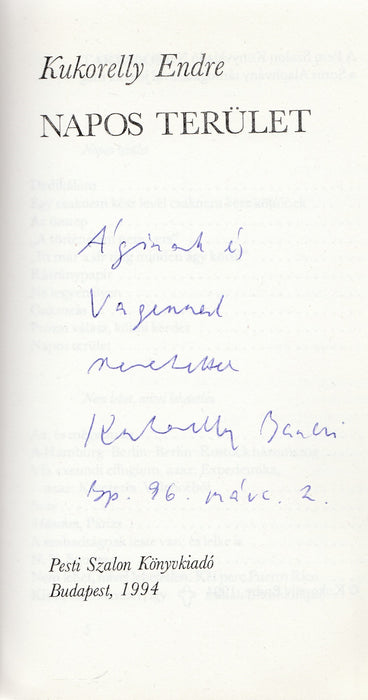 Kukorelly Endre
NAPOS TERÜLET
Áginak és
szeretettel
Kukorelly Bandi
Bp. 96. márc. 2.
Pesti Szalon Könyvkiadó
Budapest, 1994